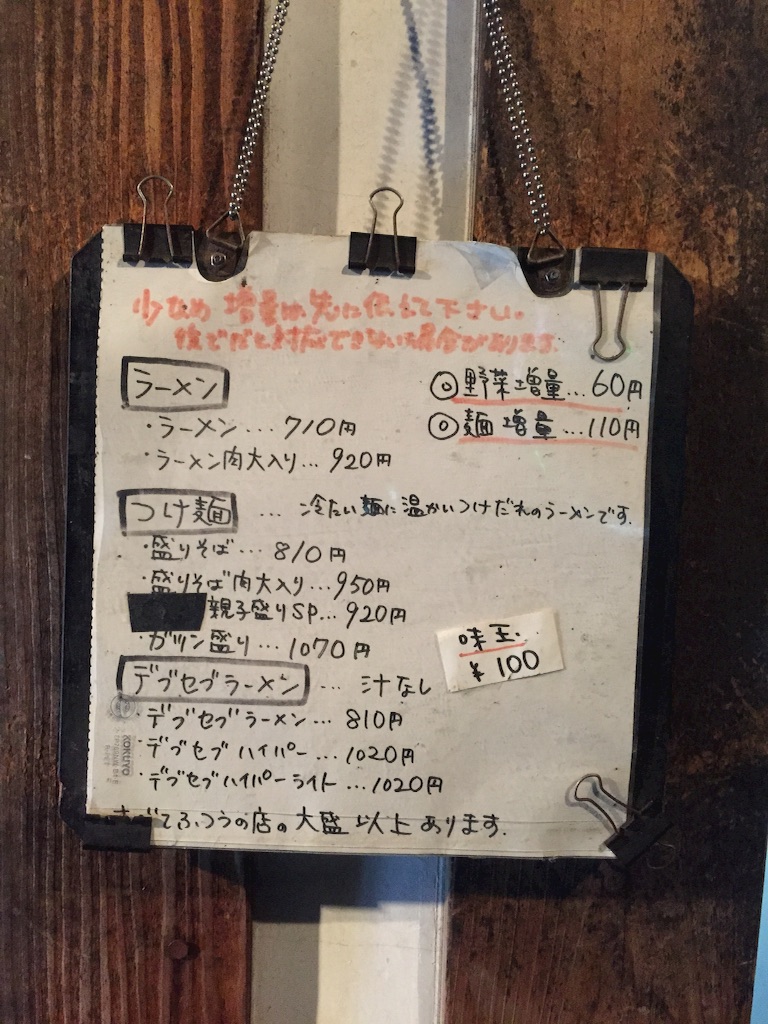 少なめ 増量は先に伝えて下さい。
後でだと対応できない場合があります。
ラーメン
◎野菜増量...60円
・ラーメン...710円
◎麺増量...110円
・ラーメン肉大入り...920円
つけ麺 ... 冷たい麺に温かいつけだれのラーメンです。
・盛りそば...810円
・盛りそば肉大入り...950円
親子盛りSP...920円
・ガツン盛り...1070円
味玉
¥100
デブセブラーメン ... 汁なし
・デブセブラーメン...810円
・デブセブハイパー...1020円
・デブセブハイパーライト...1020円
すべてふつうの店の大盛以上あります。
KOKUYO